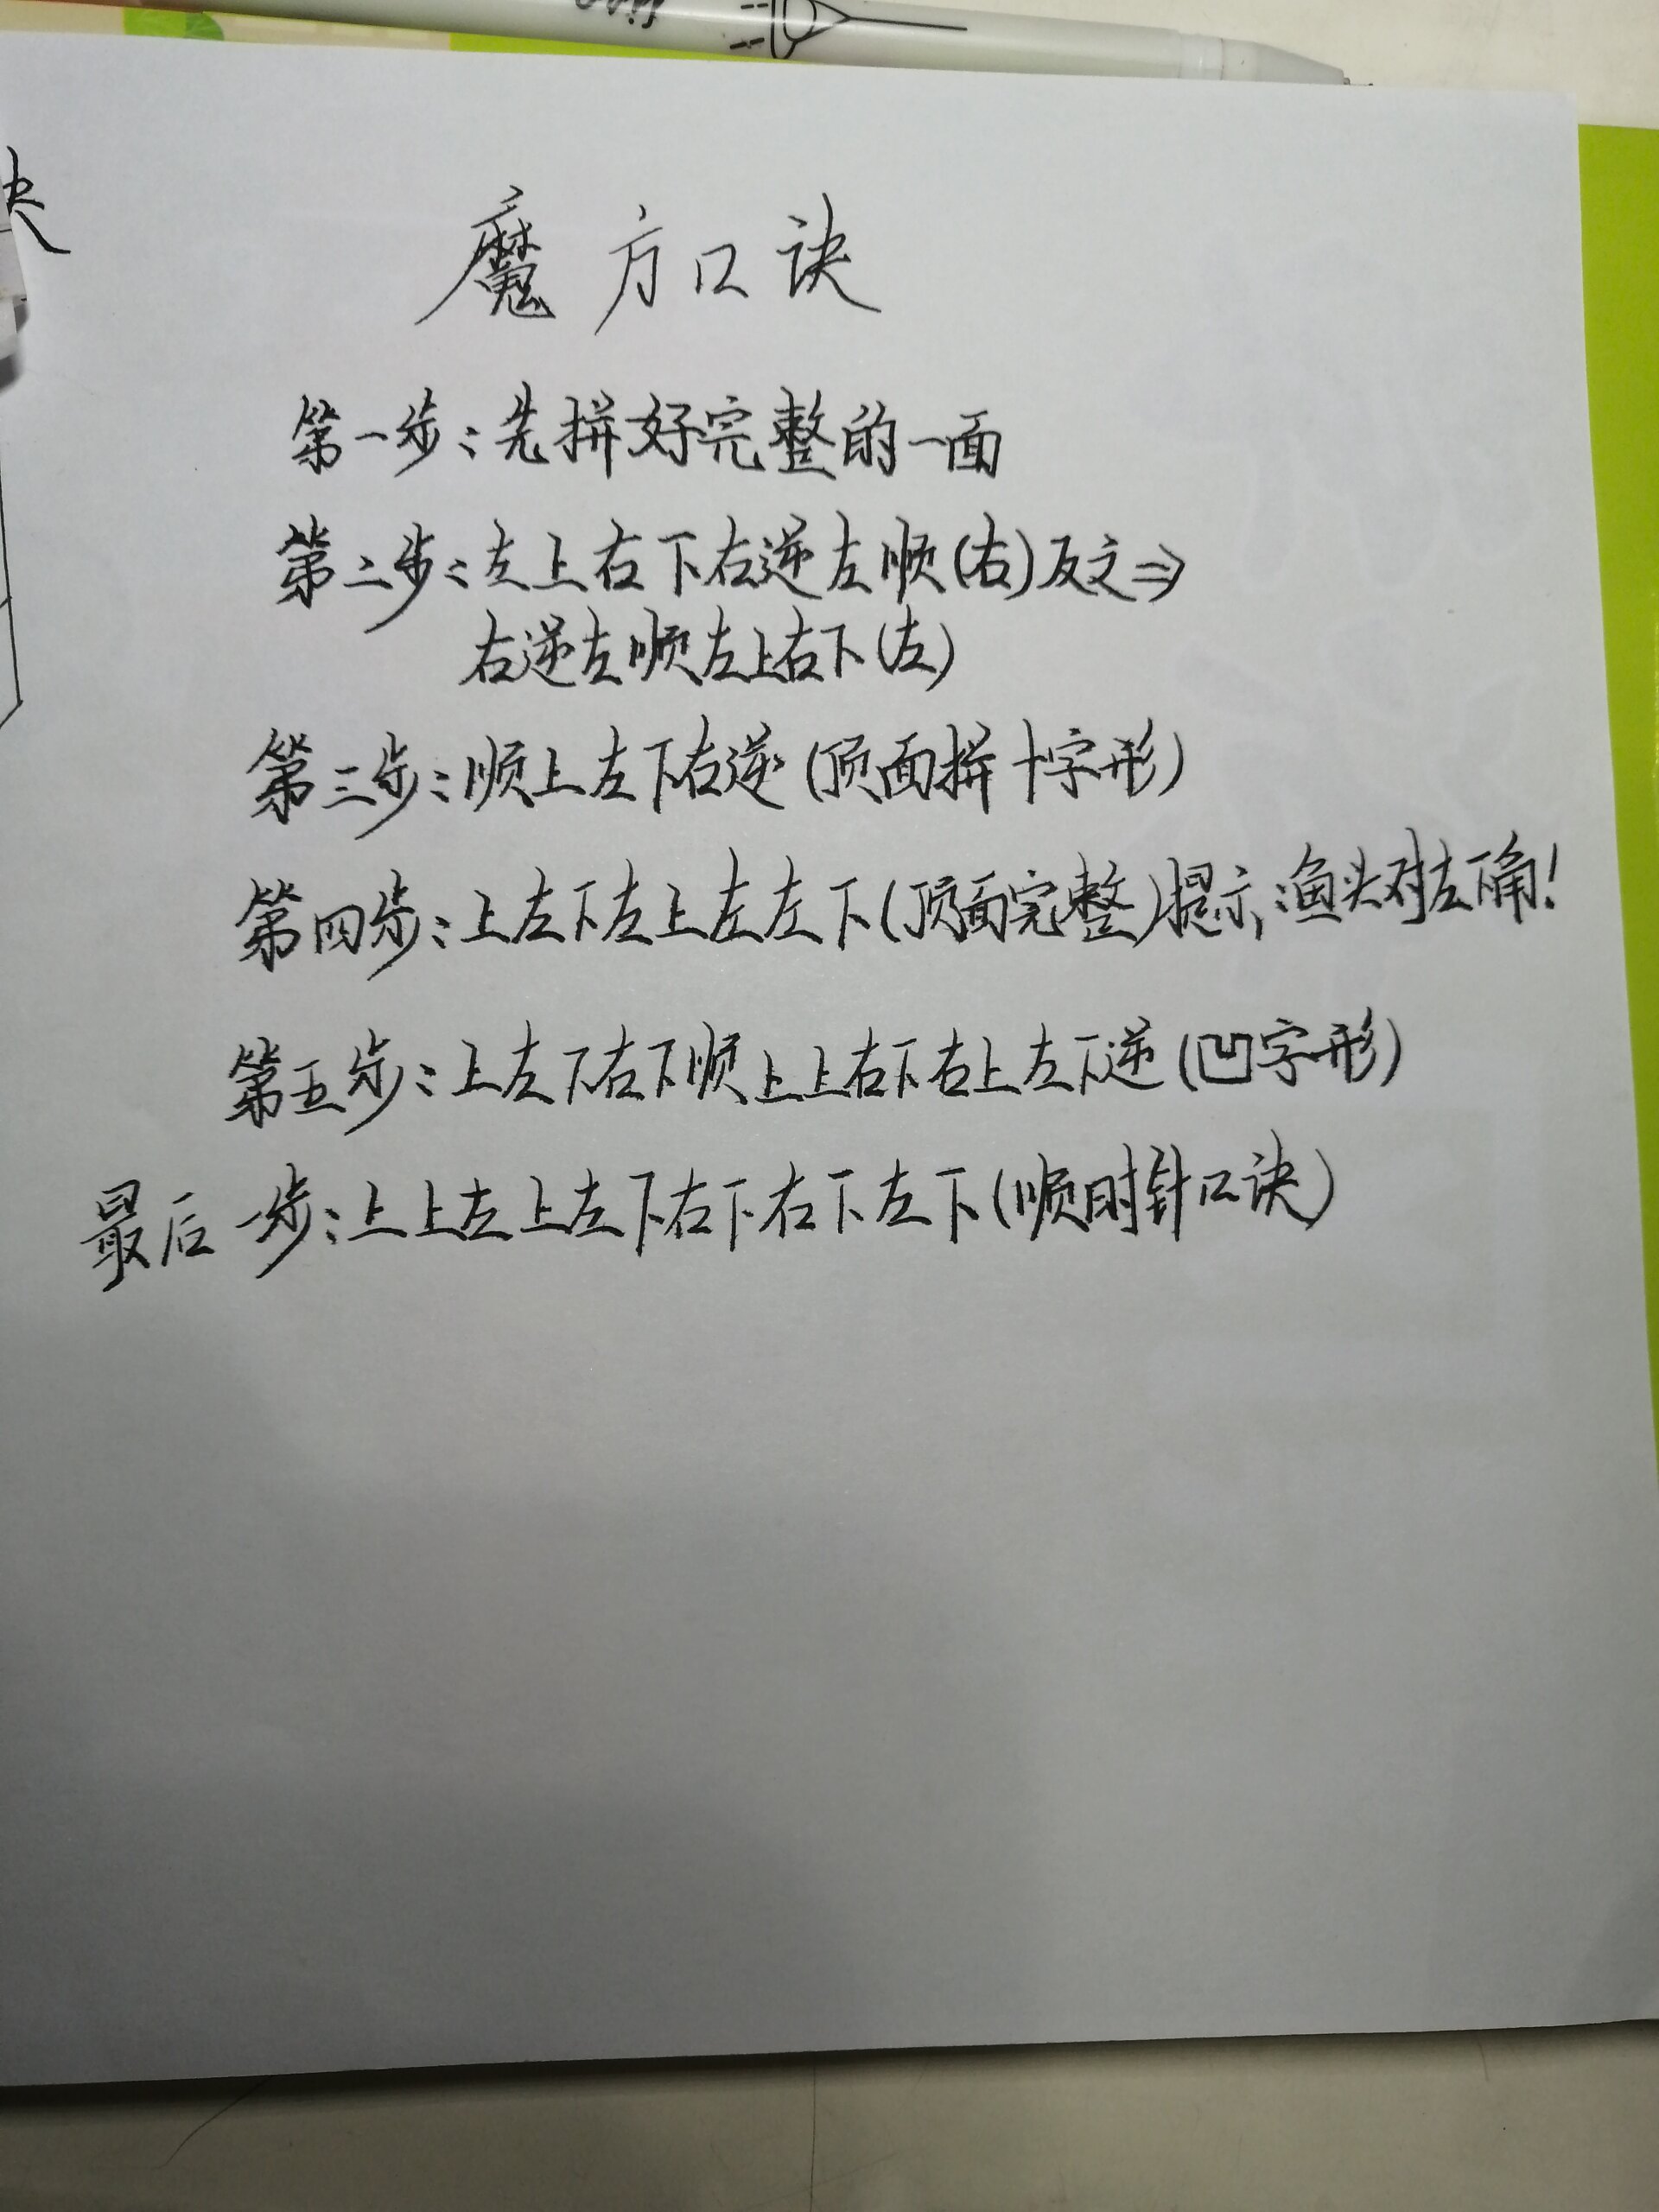 魔方口诀
第一步:先拼好完整的一面
第二步:左上右下右逆左顺(右)反文⇒
右逆左顺左上右下(左)
第三步:顺上左下右逆(顶面拼十字形)
第四步:上左下左上左左下(顶面完整)提示:渔头对左下角!
第五步:上左下右下顺上上右下右上左下逆(凹字形)
最后一步:上上左上左下右下右下左下(顺时针口诀)